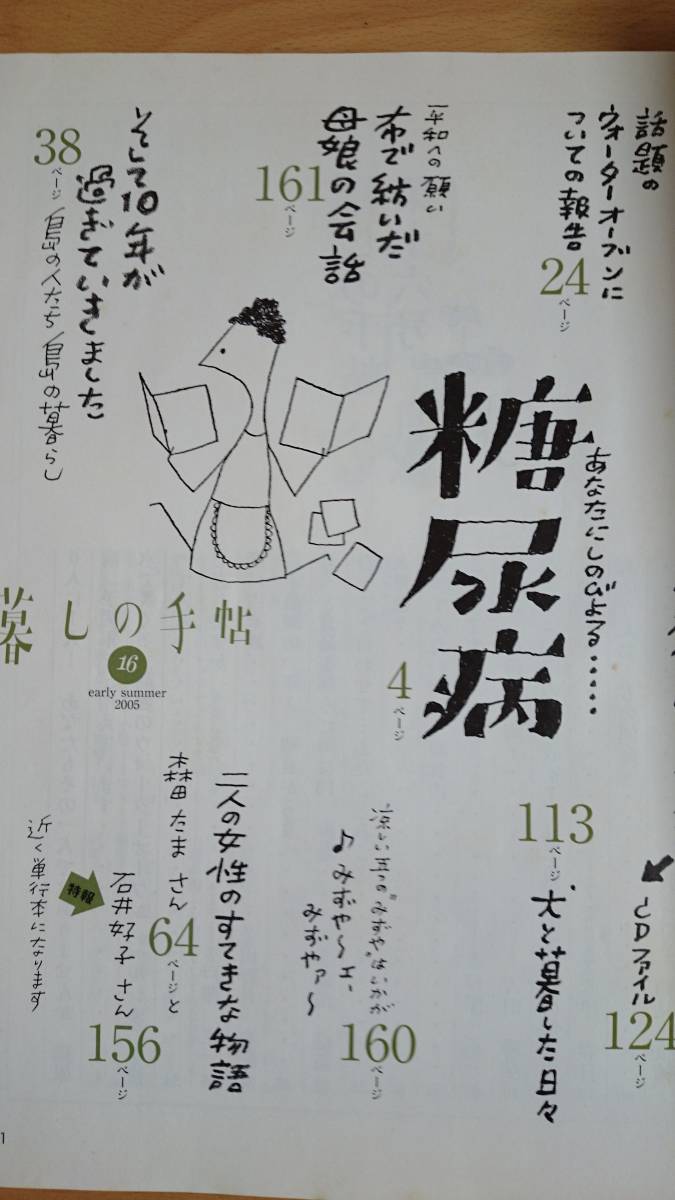 話題の
ウォーターオーブンに
ついての報告
24
ページ
平和への願い
布で紡いだ
母娘の会話
161
ページ
そして10年が
過ぎていきました
38
ページ
島の人たち/島の暮らし
あなたにしのびよる……
糖尿病
4
ページ
暮しの手帖
16
early summer
2005
CDファイル
124
ページ
113
ページ
犬と暮した日々
涼しい五つの“みずや”はいかが
♪みずや〜ェー
みずやァ〜
160
ページ
二人の女性のすてきな物語
たまさん
64
ページと
特報
石井好子さん
156
ページ
近く単行本になります
1